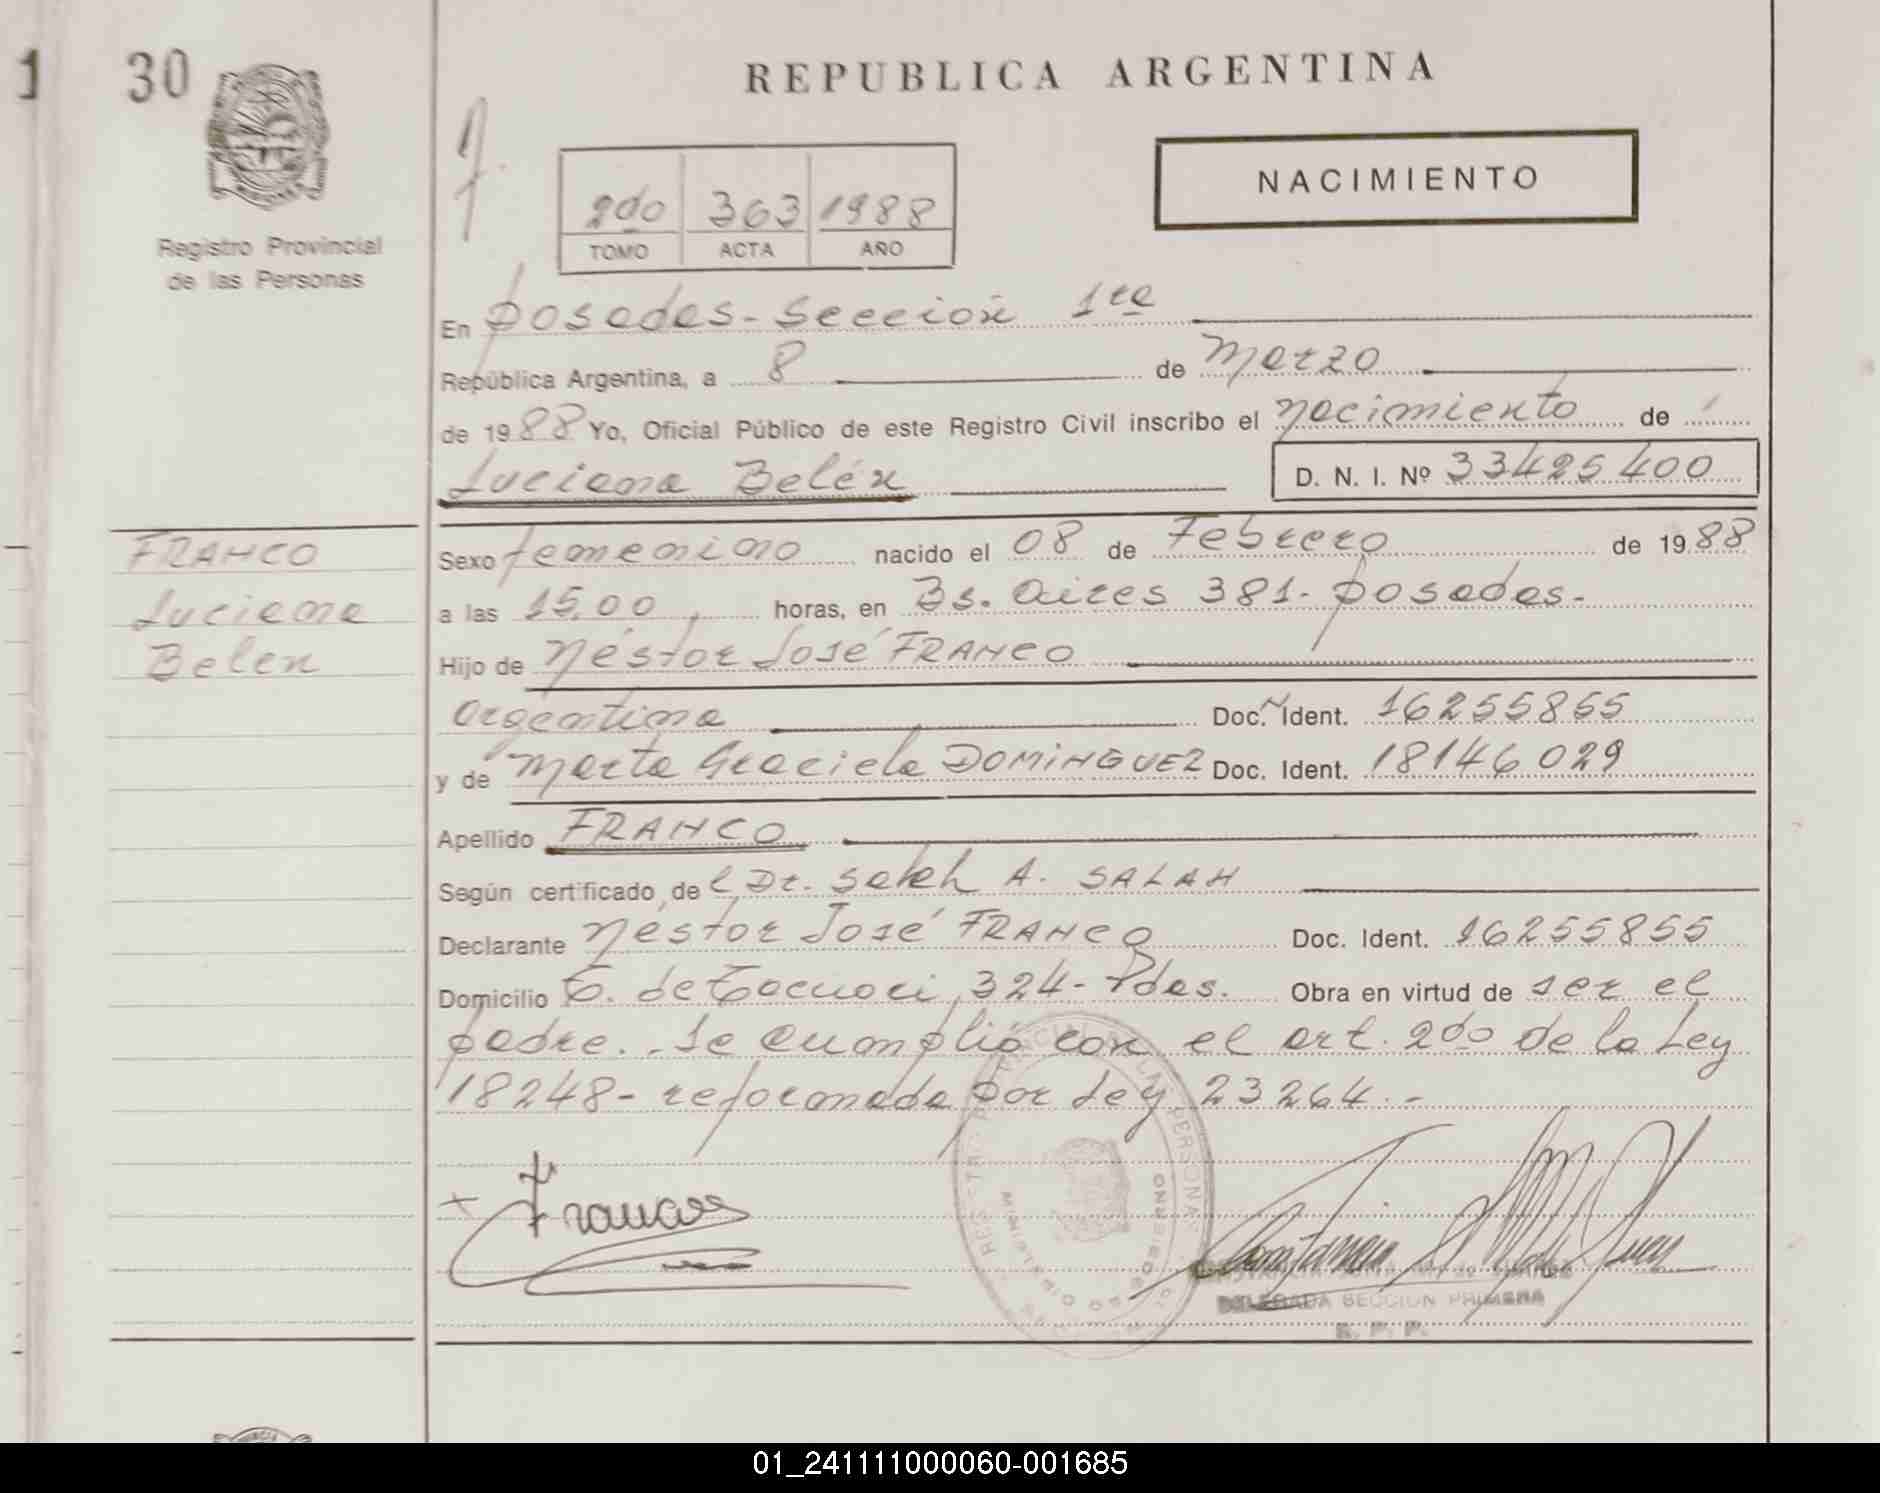 1 30
REPUBLICA ARGENTINA
NACIMIENTO
2do 363 1988
TOMO ACTA AÑO
Registro Provincial
de las Personas
En Posadas - Sección 1ra
República Argentina, a 8 de Marzo
de 1988 Yo, Oficial Público de este Registro Civil inscribo el nacimiento de
Luciana Belén D. N. I. Nº 33425400
FRANCO
Luciana
Belen
Sexo femenino nacido el 08 de Febrero de 1988
a las 15,00 horas, en Bs. Aires 381 - Posadas.-
Hijo de Néstor José FRANCO
Argentina Doc. Ident. 16255855
y de Marta Graciela DOMINGUEZ Doc. Ident. 18146029
Apellido FRANCO
Según certificado de l Dr. Saleh A. SALAH
Declarante Néstor José FRANCO Doc. Ident. 16255855
Domicilio T. de Tacuari 324 - Pdas. Obra en virtud de ser el
padre. - Se cumplió con el art. 2do de la Ley
18248 - reformada por Ley 23264. -
Franco
MINISTERIO DE GOBIERNO
DELEGADA SECCION PRIMERA
R. P. P.
01_241111000060-001685